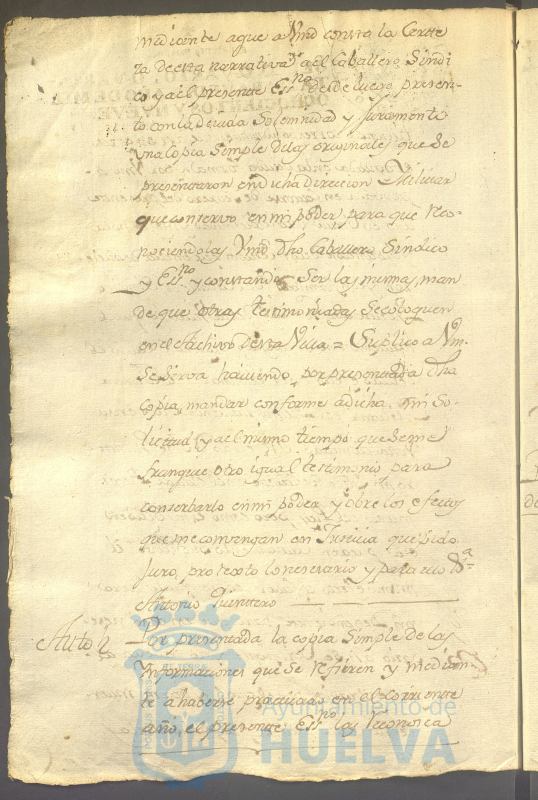 mediante aque a Vmd consta la Certe
za de esta narrativa, y a el Caballero Sindi
co y a el presente Ess.no desde luego presen
to con la devida Solemnidad y Juramento
una copia Simple de las originales que Se
presentaron en dicha direccion Militar
que conservo en mi poder para que reco
nociendolas Vmd dho Caballero Sindico
y Ess.no y constando Ser las mismas, man
de que otras testimoniadas Se coloquen
en el Archivo de esta Villa = Suplico a Vm.
Se Sirva haviendo por presentada dha
copia, mandar conforme a dicha mi So
licitud, y a el mismo tiempo que Se me
franquee otro igual testimonio para
conserbarlo en mi poder, y obre los efectos
que me convengan en Justicia que pido
Juro, protexto lo necesario y para ello &a
Antonio Quintero
Auto
Por presentada la copia Simple de las
Informaciones que Se refieren y median
te a haberse practicado en el corriente
año, el presente Ess.no las reconosca
Ayuntamiento de
HUELVA